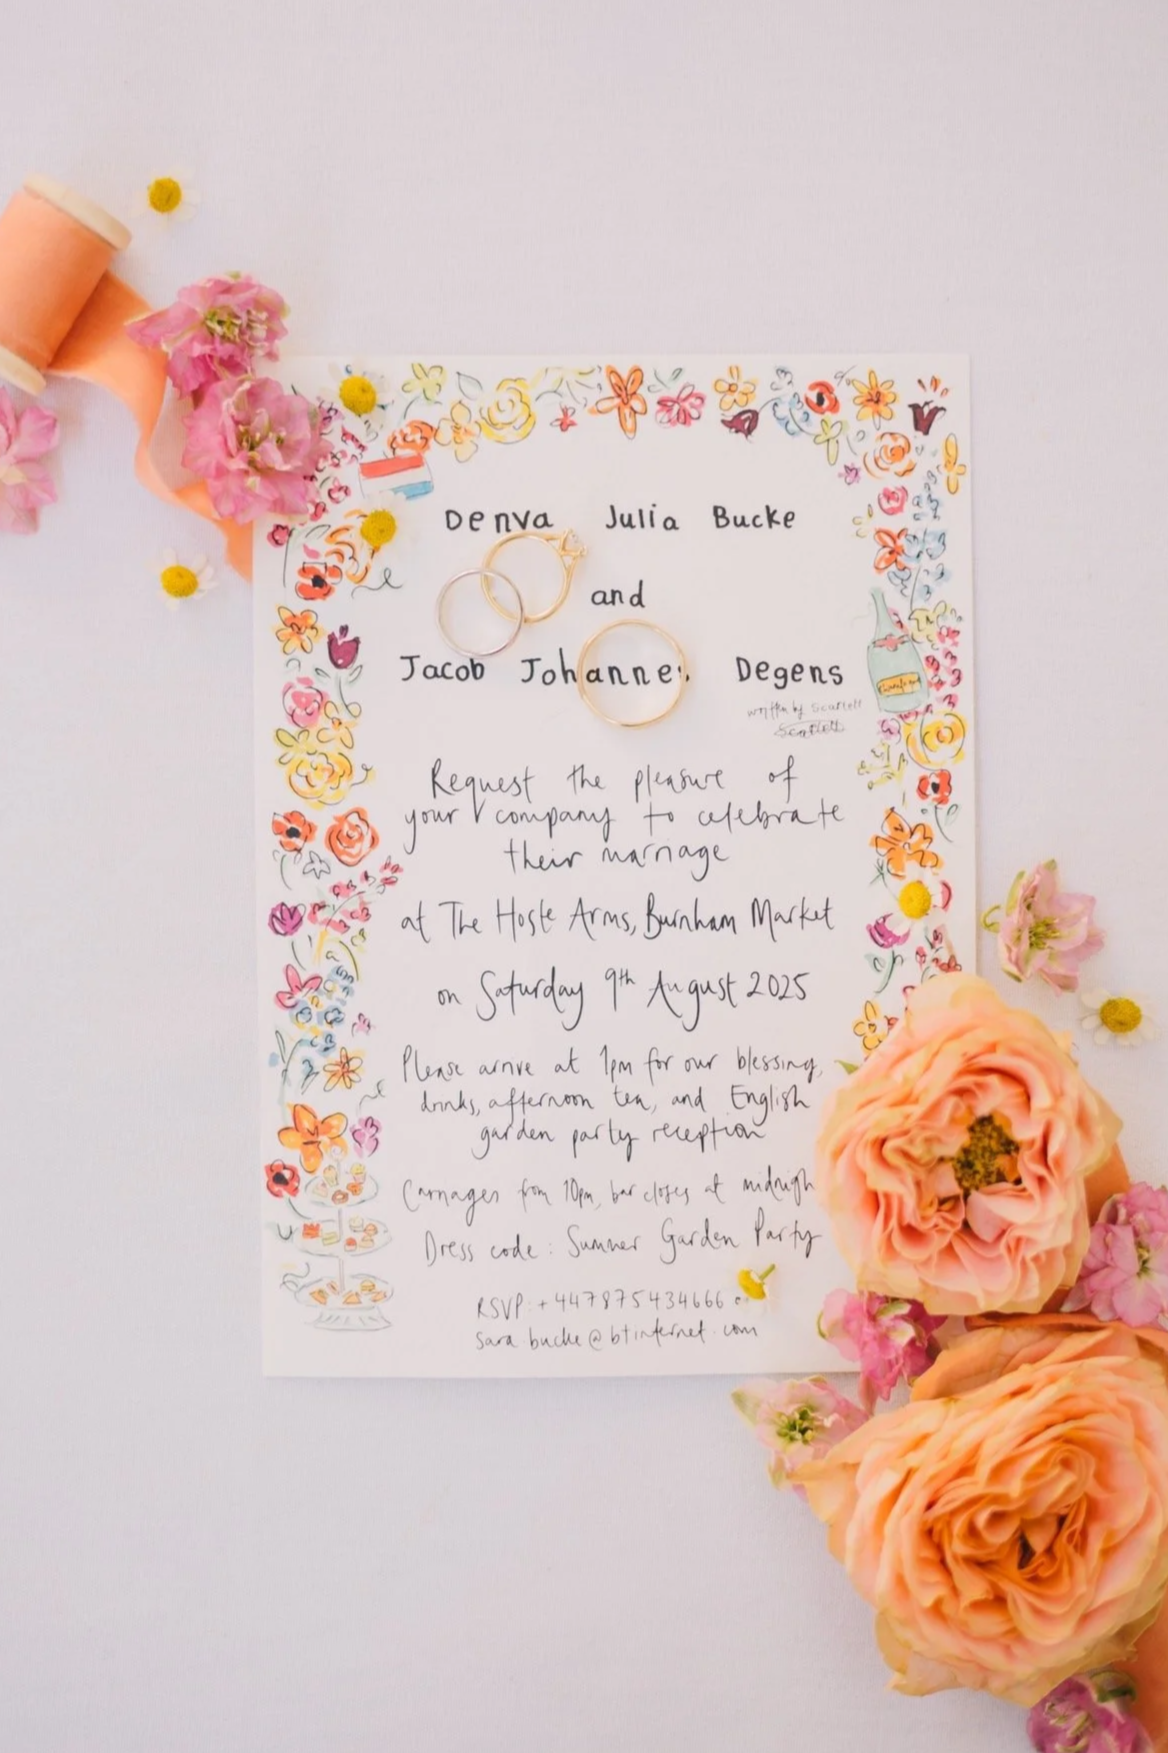 Denva Julia Bucke
and
Jacob Johannes Degens
written by Scarlett
Scarlett
Request the pleasure of
your company to celebrate
their marriage
at The Hoste Arms, Burnham Market
on Saturday 9th August 2025
Please arrive at 1pm for our blessing,
drinks, afternoon tea, and English
garden party reception
Carriages from 10pm, bar closes at midnigh
Dress code: Summer Garden Party
RSVP: +447875434666 or
sara.bucke@btinternet.com